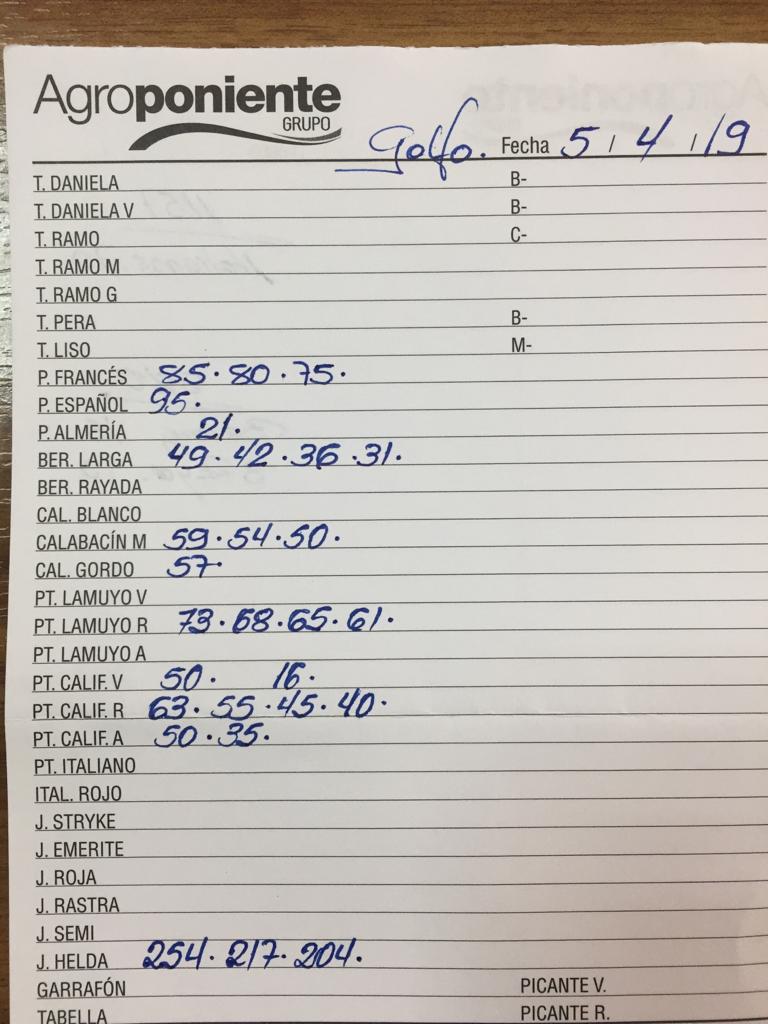 Agroponiente
GRUPO
Golfo. Fecha 5 / 4 / 19
T. DANIELA B-
T. DANIELA V B-
T. RAMO C-
T. RAMO M
T. RAMO G
T. PERA B-
T. LISO M-
P. FRANCÉS 85. 80. 75.
P. ESPAÑOL 95.
P. ALMERÍA 21.
BER. LARGA 49. 42. 36. 31.
BER. RAYADA
CAL. BLANCO
CALABACÍN M 59. 54. 50.
CAL. GORDO 57.
PT. LAMUYO V
PT. LAMUYO R 73. 68. 65. 61.
PT. LAMUYO A
PT. CALIF. V 50. 16.
PT. CALIF. R 63. 55. 45. 40.
PT. CALIF. A 50. 35.
PT. ITALIANO
ITAL. ROJO
J. STRYKE
J. EMERITE
J. ROJA
J. RASTRA
J. SEMI
J. HELDA 254. 217. 204.
GARRAFÓN PICANTE V.
TABELLA PICANTE R.